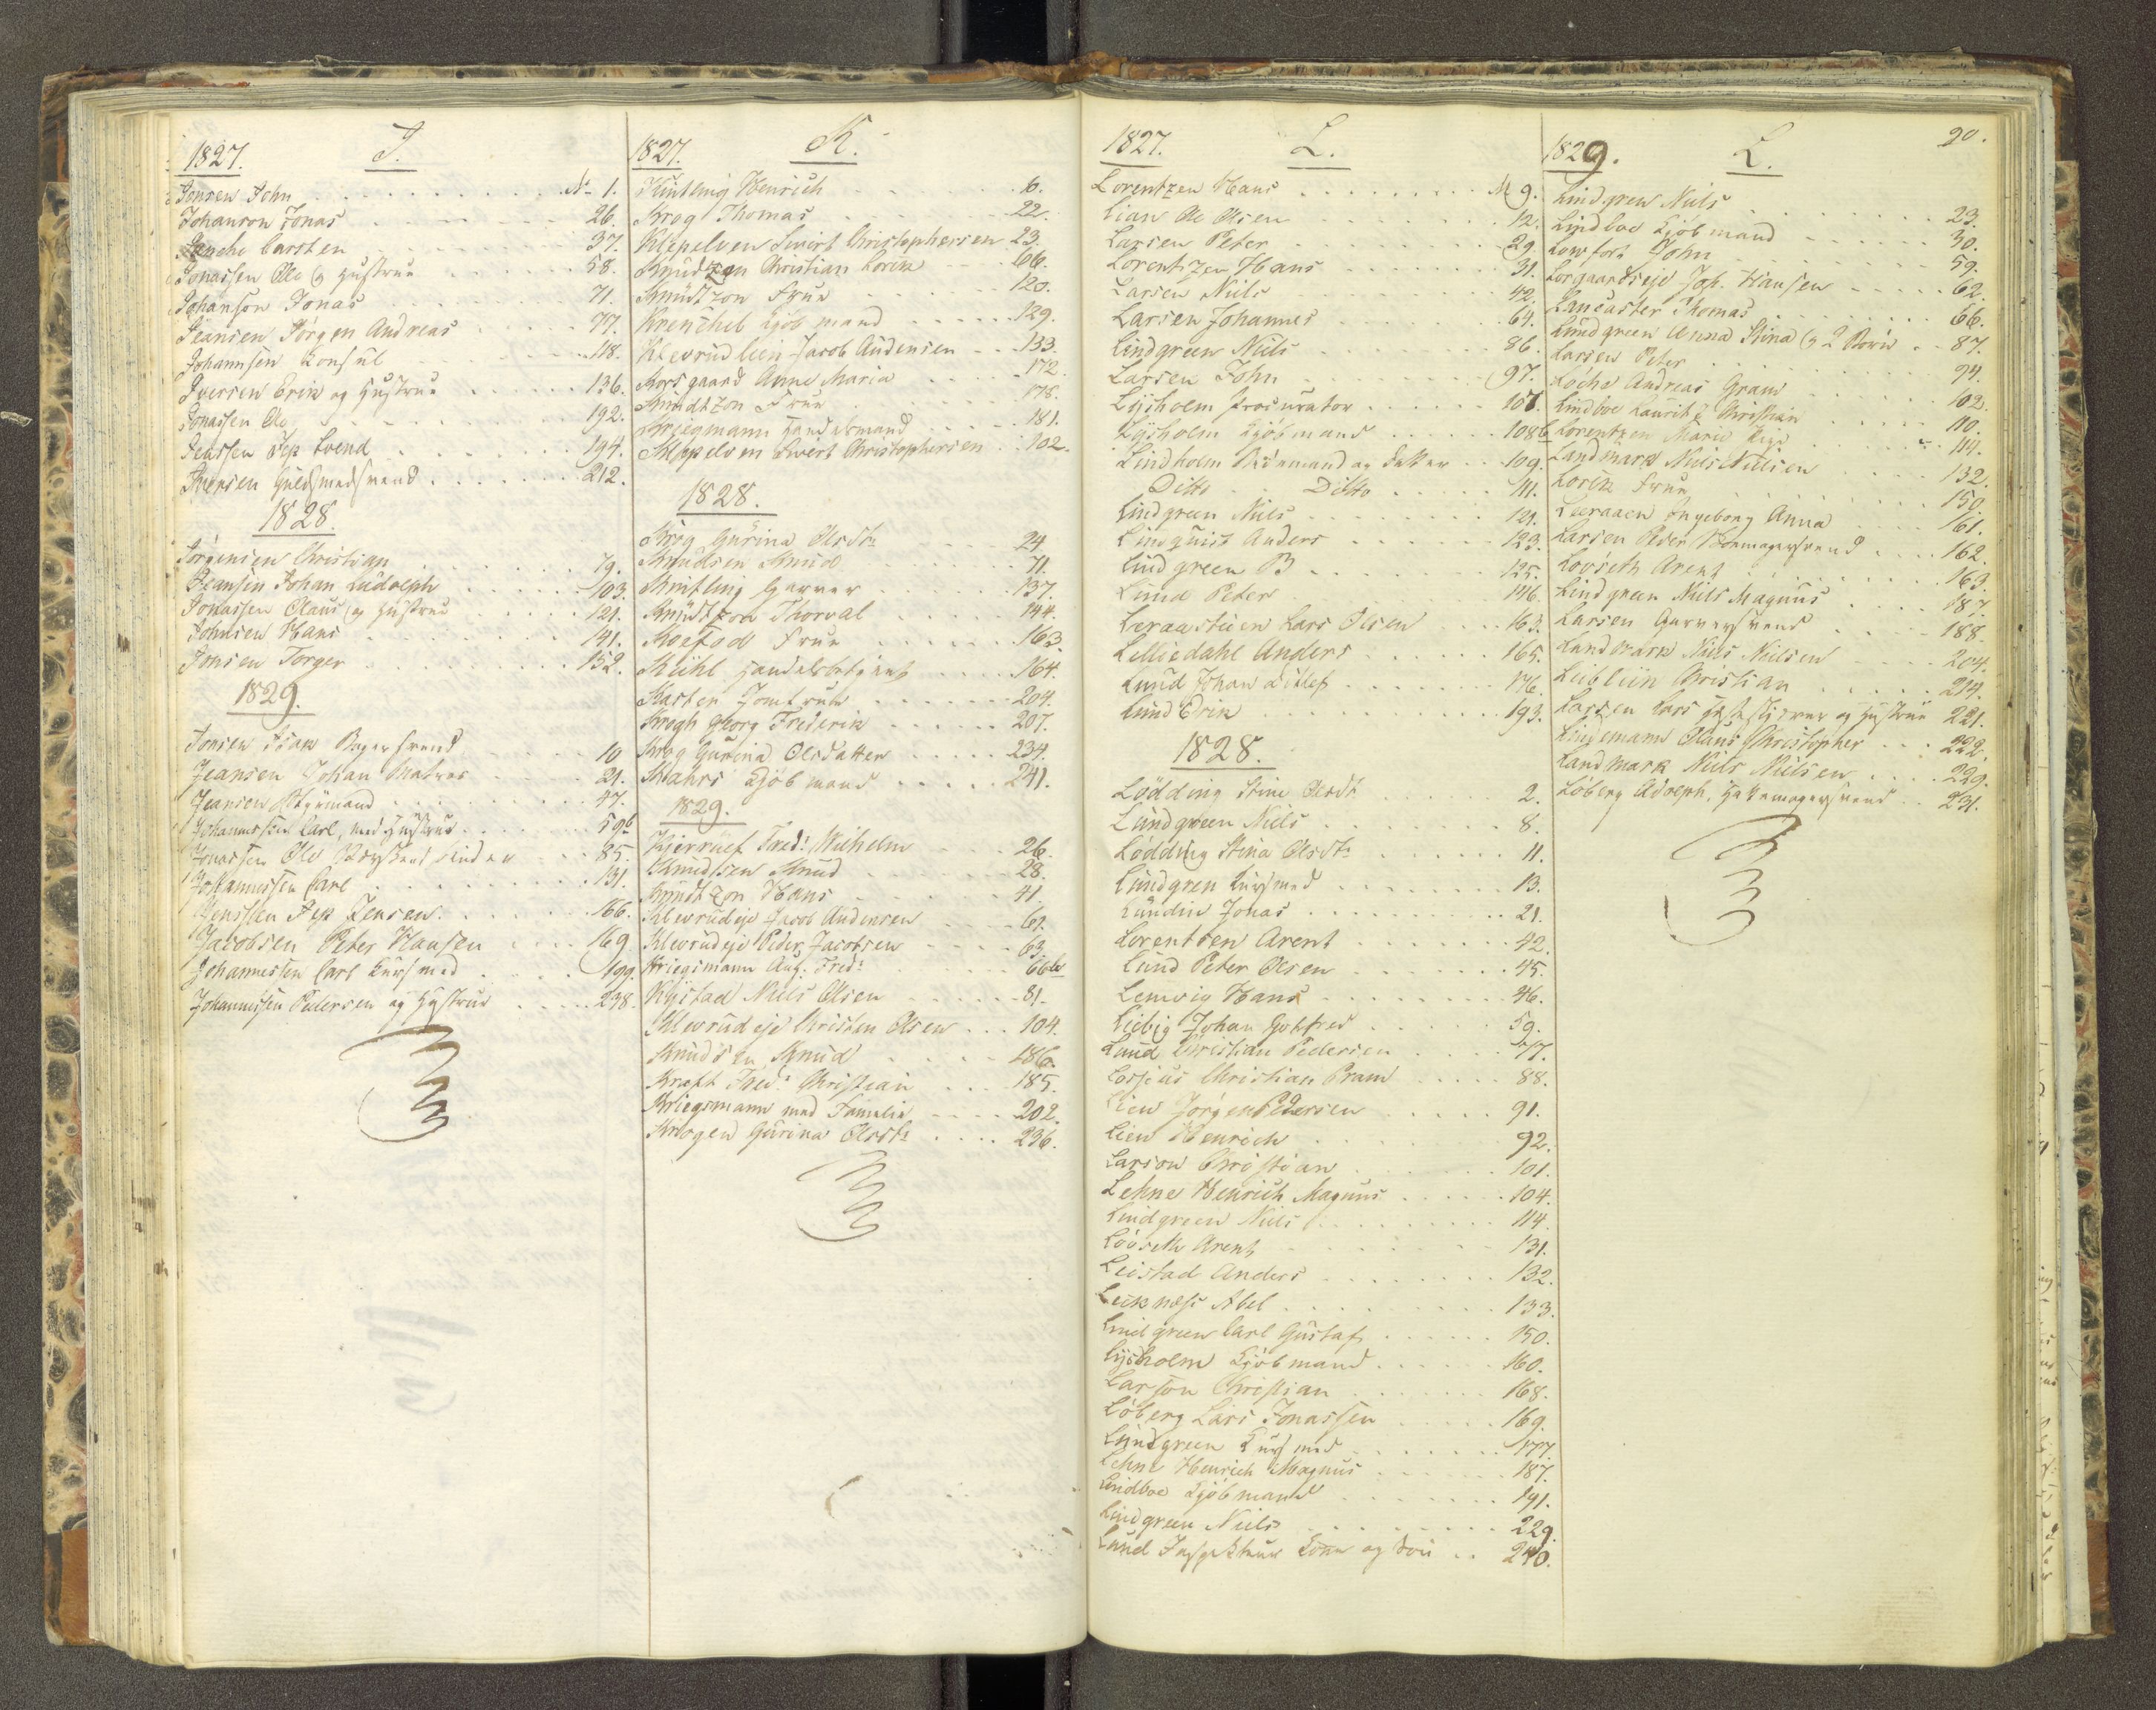 1827. J.
Jonsen John . . . No 1.
Johanson Jonas . . . 26.
Carsten . . . 37.
Jonassen Ole og Hustrue . . . 58.
Johanson Jonas . . . 71.
Jeansen Jörgen Andreas . . . 77.
Johannsen Consul . . . 118.
Iversen Erik og Hustrue . . . 136.
Jonassen Ole . . . 192.
Jenssen Jep Svend . . . 194.
Iversen Guldsmedsvend . . . 212.
1828.
Jörgensen Christian . . . 79.
Jeansen Johan Ludolph . . . 103.
Jonassen Olaus og Hustrue . . . 121.
Johnsen Hans . . . 141.
Jonsen Torger . . . 152.
1829.
Jonsen Isak Bagersvend . . . 10
Jeansen Johan Matros . . . 21.
Jeansen Styrmand . . . 47.
Johannessen Carl, med Hustrue . . . 59b
Jonassen Ole . . . 85.
Johannessen Carl . . . 131.
Jenssen Jep Jensen . . . 166.
Jacobsen Peter Hansen . . . 169.
Johannessen Carl Kursmed . . . 199.
Johannessen Pedersen og Hustrue . . . 238.
1827. K.
Kintling Henrich . . . 6.
Krog Thomas . . . 22.
Klepelven Sivert Christophersen 23.
Knudtzon Christian Lorck . . . 66.
Knudtzon Frue . . . 120.
Krenchel Kjöbmand . . . 129.
Klevrudlein Jacob Andersen . . . 133.
Korsgaard Anne Maria . . . 172.
Knudtzon Frue . . . 178.
Kriegmann Handelsmand . . . 181.
Kleppelven Sivert Christophersen . . 102.
1828.
Krog Gurina Olsdtr . . . 24
Knudsen Knud . . . 71.
Kintling Garver . . . 137.
Knudtzon Thorval . . . 144.
Koefod Frue . . . 163.
Kühl Handelsbetjent . . . 164.
Karsten Jomfrue . . . 204.
Krogh Georg Frederik . . . 207.
Krog Gurina Olsdatter . . . 234.
Kahrs Kjöbmand . . . 241.
1829.
Kjerrulf Fred: Wilhelm . . . 26.
Knudssen Knud . . . 28.
Knudtzon Hans . . . 41.
Klevrudeje Jacob Andersen . . . 61.
Klevrudeje Peder Jacobsen . . . 63.
Kriegsmann Aug. Fred: . . . 66b
Kystad Niels Olsen . . . 81.
Klevrudeje Christen Olsen . . . 104.
Knudsen Knud . . . 186.
Kraft Fred: Christian . . . 185.
Kriegsmann med Familie . . . 202.
Krogen Gurina Olsdtr . . . 236.
1827. L.
Lorentzen Hans . . . No 9.
Lian Ole Olsen . . . 12.
Larsen Peter . . . 29.
Lorentzen Hans . . . 31.
Larsen Niels . . . 42.
Larsen Johannes . . . 64.
Lindgreen Niels . . . 86.
Larsen John . . . 97.
Lysholm Procurator . . . 107.
Lysholm Kjöbmand . . . 108b
Lindholm og Datter . . . 109.
Ditto . . Ditto . . . 111.
Lindgreen Niels . . . 121.
Lindquist Anders . . . 123.
Lindgreen B . . . 125.
Lund Peter . . . 146.
Leraastuen Lars Olsen . . . 163.
Lilliedahl Anders . . . 165.
Lund Johan Ditlef . . . 176.
Lund Erik . . . 193.
1828.
Lödding Stine Olsdt . . . 2.
Lundgreen Niels . . . 8.
Lödding Stina Olsdtr . . . 11.
Lundgren Kursmed . . . 13.
Lundin Jonas . . . 21.
Lorentsen Arent . . . 42.
Lund Peter Olsen . . . 45.
Lemvig Hans . . . 46.
Liebig Johan Gotfred . . . 59.
Lund Christian Pedersen . . . 77.
Lossius Christian Pram . . . 88.
Lien Jörgen Pedersen . . . 91.
Lien Henrich . . . 92.
Larson Christian . . . 101.
Lehne Henrich Magnus . . . 104.
Lindgreen Niels . . . 114.
Lövseth Arent . . . 131.
Leistad Anders . . . 132.
Leiknæss Abel . . . 133.
Lindgreen Carl Gustaf . . . 150.
Lysholm Kjöbmand . . . 160.
Larson Christian . . . 168.
Löberg Lars Jonassen . . . 169.
Lundgreen Kursmed . . . 177.
Lehne Henrich Magnus . . . 187.
Lindboe Kjöbmand . . . 191.
Lindgreen Niels . . . 229.
Lund Inspekteur Kone og . . 240.
20.
1829. L.
Lindgren Niels . . . 23.
Lindboe Kjöbmand . . . 30.
John . . . 59.
Lorgaardseje Joh. Hansen . . . 62.
Lancaster Thomas . . . 66.
Lundgreen Anna Stina og 2 Börn . . 87.
Larsen Peter . . . 94.
Löchs Andreas Gram . . . 102.
Lindboe Lauritz Christian . . . 110.
Lorentzen Marie . . . 114.
Landmark Niels Nielsen . . . 132.
Lorck Frue . . . 150.
Leeraaen Ingeborg Anna . . . 161.
Larsen Peder . . . 162.
Lövseth Arent . . . 163.
Lindgreen Niels Magnus . . . 187.
Larsen Garversvend . . . 188.
Landmark Niels Nielsen . . . 204.
Leibliin Christian . . . 214.
Larsen Lars og Hustrue 221.
Lingemann Claus Christopher . . . 222.
Landmark Niels Nielsen . . . 229.
Löberg Adolph, Hattemagersvend . . 231.